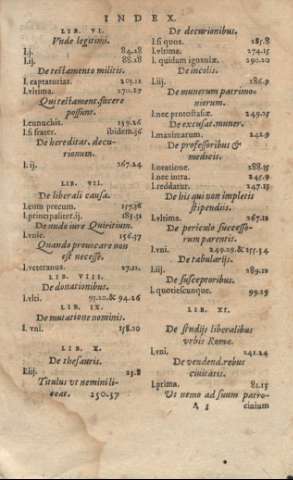 INDEX.
LIB. VI.
Vnde legitimi.
l.j. 84.18
l.ij. 88.18
De testamento militis.
l.captatorias. 203.11
l.vltima.
Qui testament. facere
possunt.
l.eunuchis. 159.26
l.si frater. ibidem.36
De hereditat. decu-
rionum.
l.ij. 267.24
LIB. VII.
De liberali causa.
l.cum precum. 157.36
l.principaliter.ij. 183.31
De nudo iure Quiritium.
l.vnic. 156.47
Quando prouocare non
est necesse.
l.veteranus. 27.11
LIB. VIII.
De donationibus.
l.vlti. 93.20.& 94.26
LIB. IX.
De mutatione nominis.
l.vni. 158.20
LIB. X.
De thesauris.
l.iij. 23.8
Titulus vt nemini li-
ceat. 250.37
De decurionibus.
l.si quos. 185.8
l.vltima. 274.15
l.quidam igoniuiæ. 290.20
De incolis.
l.iij. 186.9
De munerum patrimo-
nierum.
l.nec protostasiæ. 249.25
De excusat. muner.
l.maximarum. 242.9
De professoribus &
medicis.
l.oratione. 288.15
l.nec intra. 245.9
l.reddatur. 247.15
De his qui non impletis
stipendiis.
l.vltima. 267.12
De periculo successo-
rum parentis.
l.vni. 249.29.& 255.34
De tabulariis.
l.iij. 289.12
De susceptoribus.
l.quotiescunque. 99.29
LIB. XI.
De studiis liberalibus
vrbis Romæ.
l.vni. 241.24
De vendend. rebus
ciuitatis.
l.prima. 81.15
Vt nemo ad suum patro-
ciuium